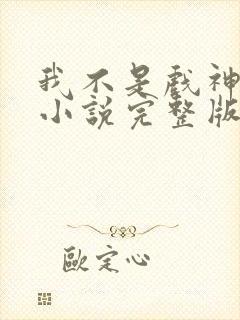 我不是戲神
小說完整版
歐定心